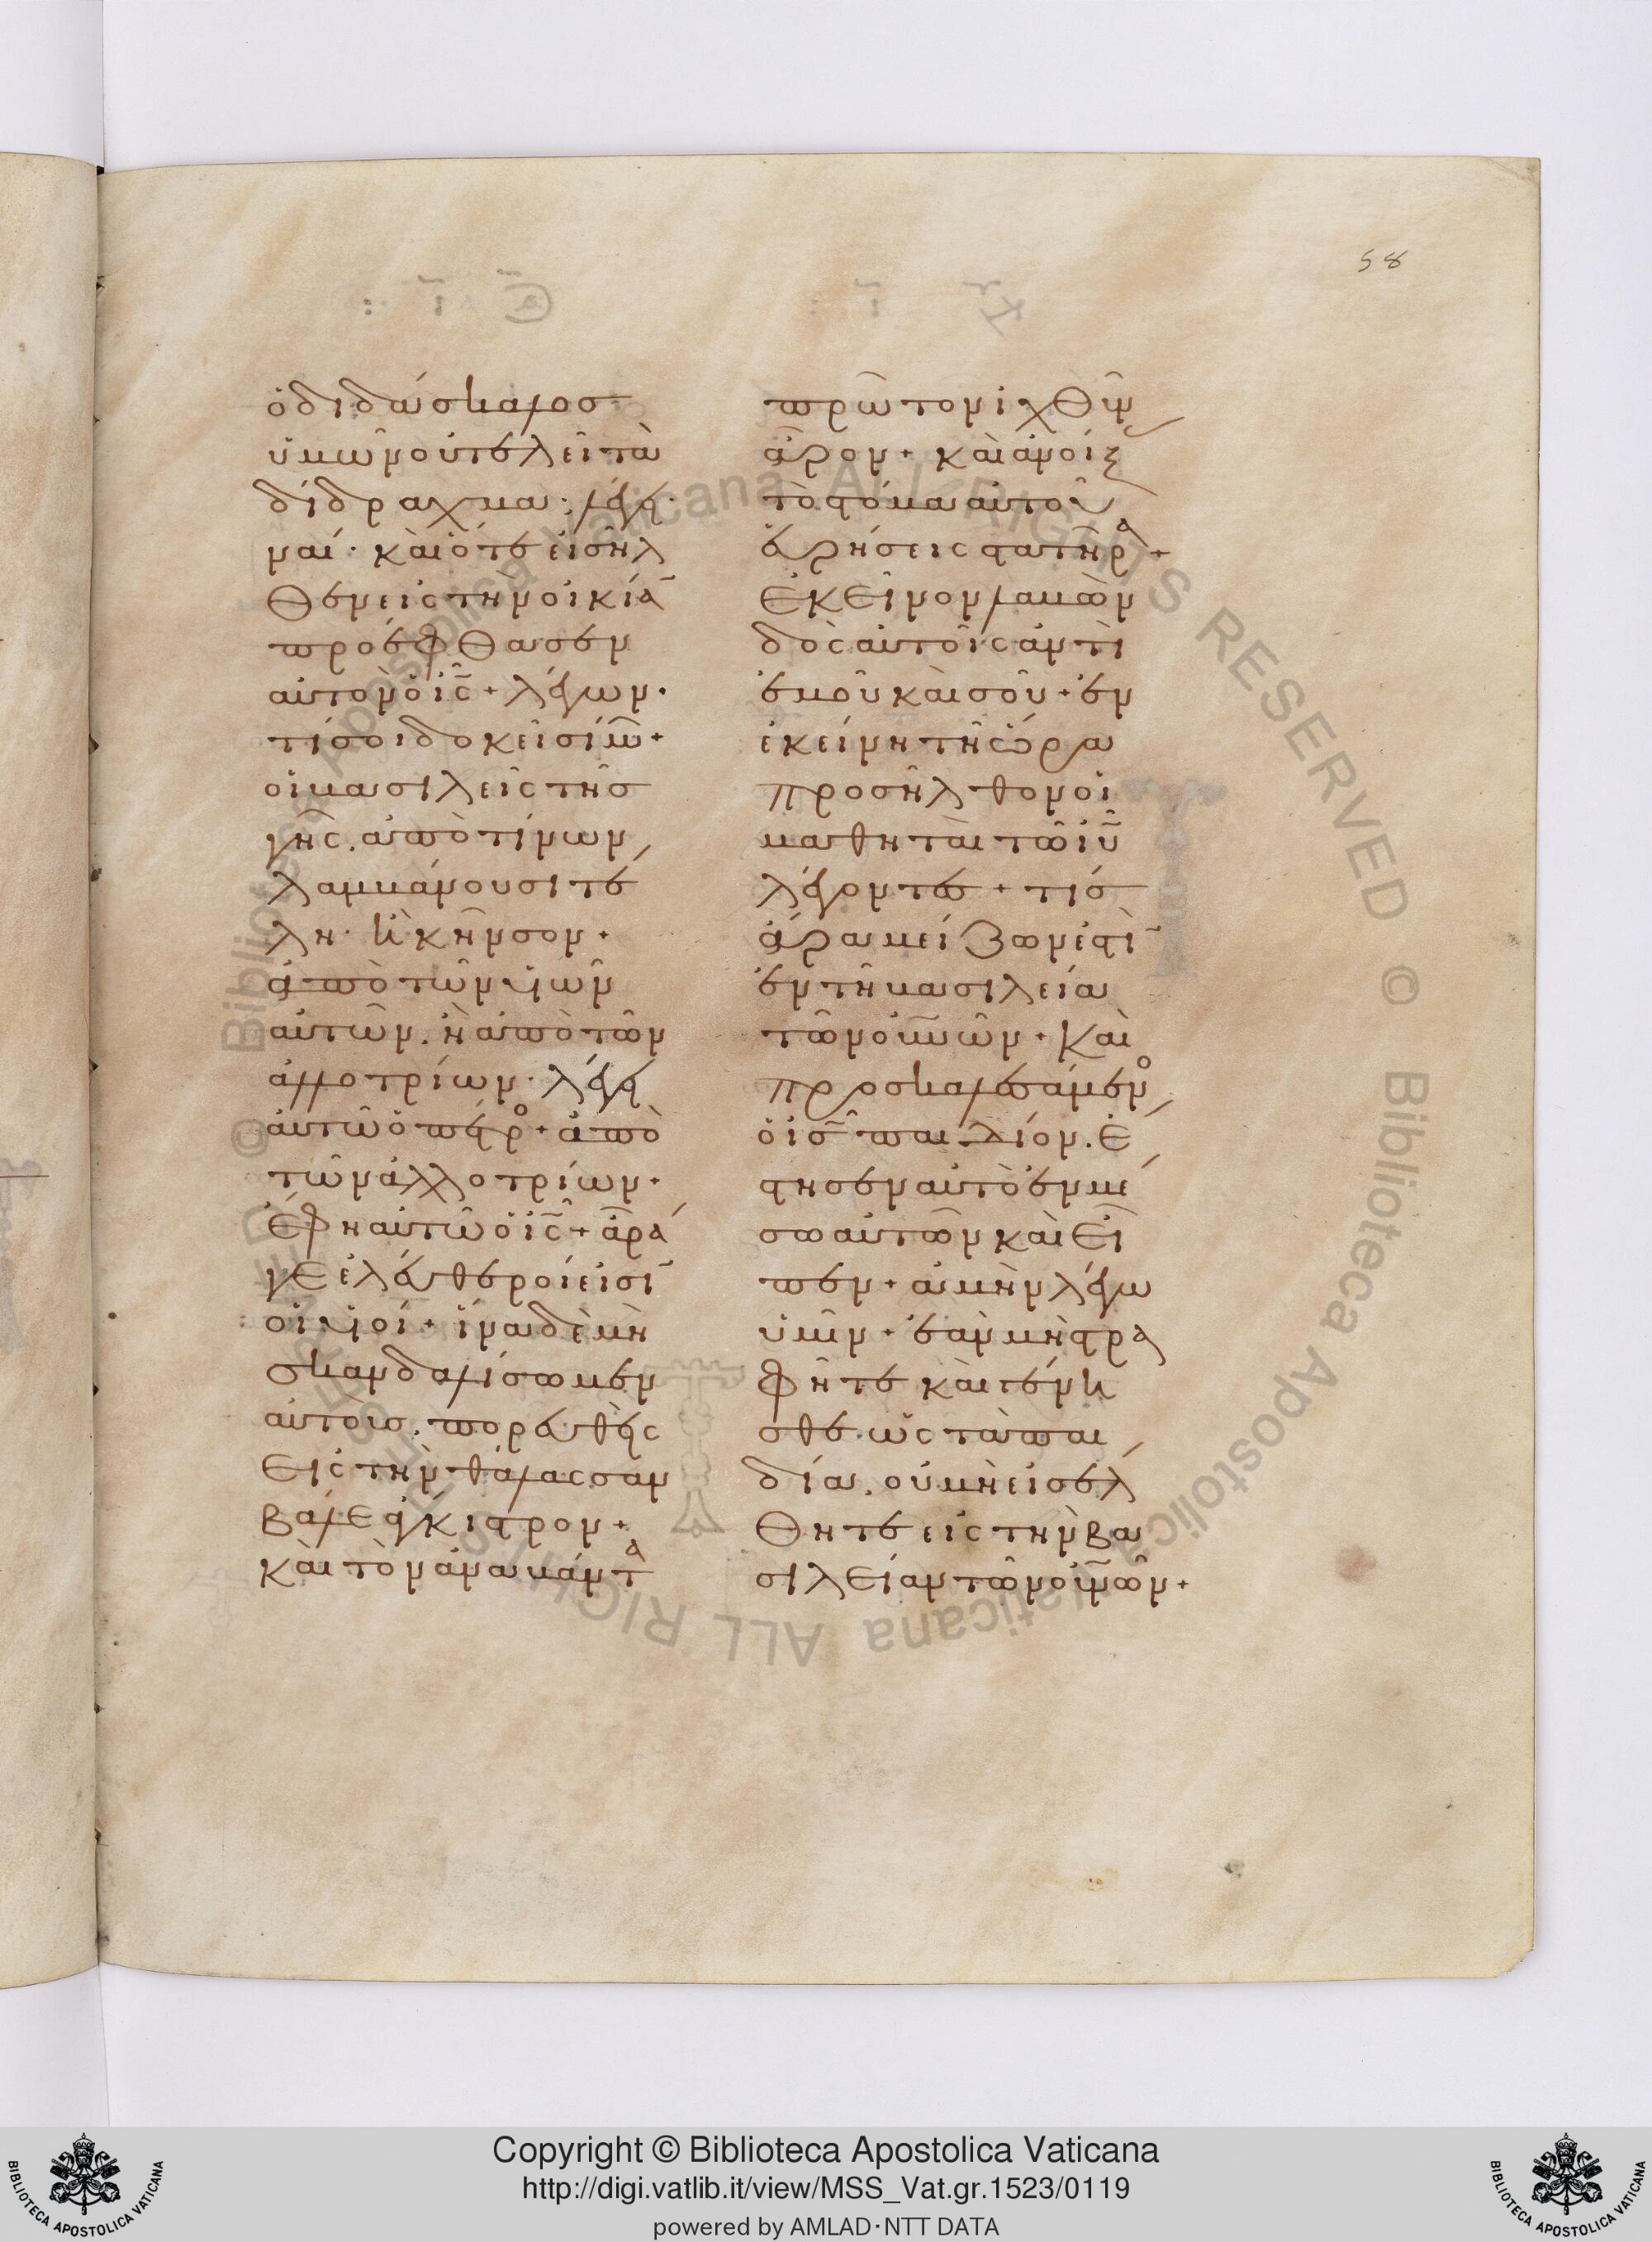 58
ὁ διδάσκαλος
ὑμῶν οὐ τελεῖ τὰ
δίδραχμα· λέγει·
ναί· καὶ ὅτε εἰσῆλ
θεν εἰς τὴν οἰκία̅
προέφθασεν
αὐτὸν ὁ ι̅ς̅ + λέγων·
τί σοι δοκεῖ σίμω̅ +
οἱ βασιλεῖς τῆς
γῆς. ἀπὸ τίνων
λαμβάνουσι τέ
λη· ἢ κῆνσον +
ἀπὸ τῶν υἱῶν
αὐτῶν. ἢ ἀπὸ τῶν
ἀλλοτρίων· λέγει
αὐτῶ ὁ πέτρο + ἀπὸ
τῶν ἀλλοτρίων·
ἔφη αὐτῶ ὁ ι̅ς̅ + ἄρα
γε ἐλεύθεροί εἰσι̅
οἱ υἱοί + ἵνα δὲ μὴ
σκανδαλίσωμεν
αὐτοὺς. πορευθεὶς
εἰς τὴν θάλασσαν
βάλε ἄγκιστρον +
καὶ τὸν ἀναβάντα
πρῶτον ἰχθὺν
ἆρον + καὶ ἀνοίξ
τὸ στόμα αὐτοῦ
εὑρήσεις στατῆρα +
ἐκεῖνον λαβὼν
δὸς αὐτοῖς ἀντὶ
ἐμοῦ καὶ σοῦ + ἐν
ἐκείνη τῆ ὥρα
προσῆλθον οἱ
μαθηταὶ τῶ ι̅υ̅
λέγοντες + τίς
ἄρα μείζων ἐστὶ̅
ἐν τῆ βασιλεία
τῶν ο̅υ̅ν̅ῶν + καὶ
προσκαλεσάμενο
ὁ ι̅ς̅ παιδίον. ἔ
στησεν αὐτὸ ἐν μέ
σω αὐτῶν καὶ εἶ
πεν + ἀμὴν λέγω
ὑμῖν + ἐὰν μὴ στρα
φῆτε καὶ γένη
σθε ὡς τὰ παι
δία. οὐ μὴ εἰσέλ
θητε εἰς τὴν βα
σιλείαν τῶν ο̅υ̅ν̅ῶν +
Copyright © Biblioteca Apostolica Vaticana
http://digi.vatlib.it/view/MSS_Vat.gr.1523/0119
powered by AMLAD·NTT DATA
BIBLIOTECA APOSTOLICA VATICANA
BIBLIOTECA APOSTOLICA VATICANA
© Biblioteca Apostolica Vaticana ALL RIGHTS RESERVED © Biblioteca Apostolica Vaticana ALL RIGHTS RESERVED